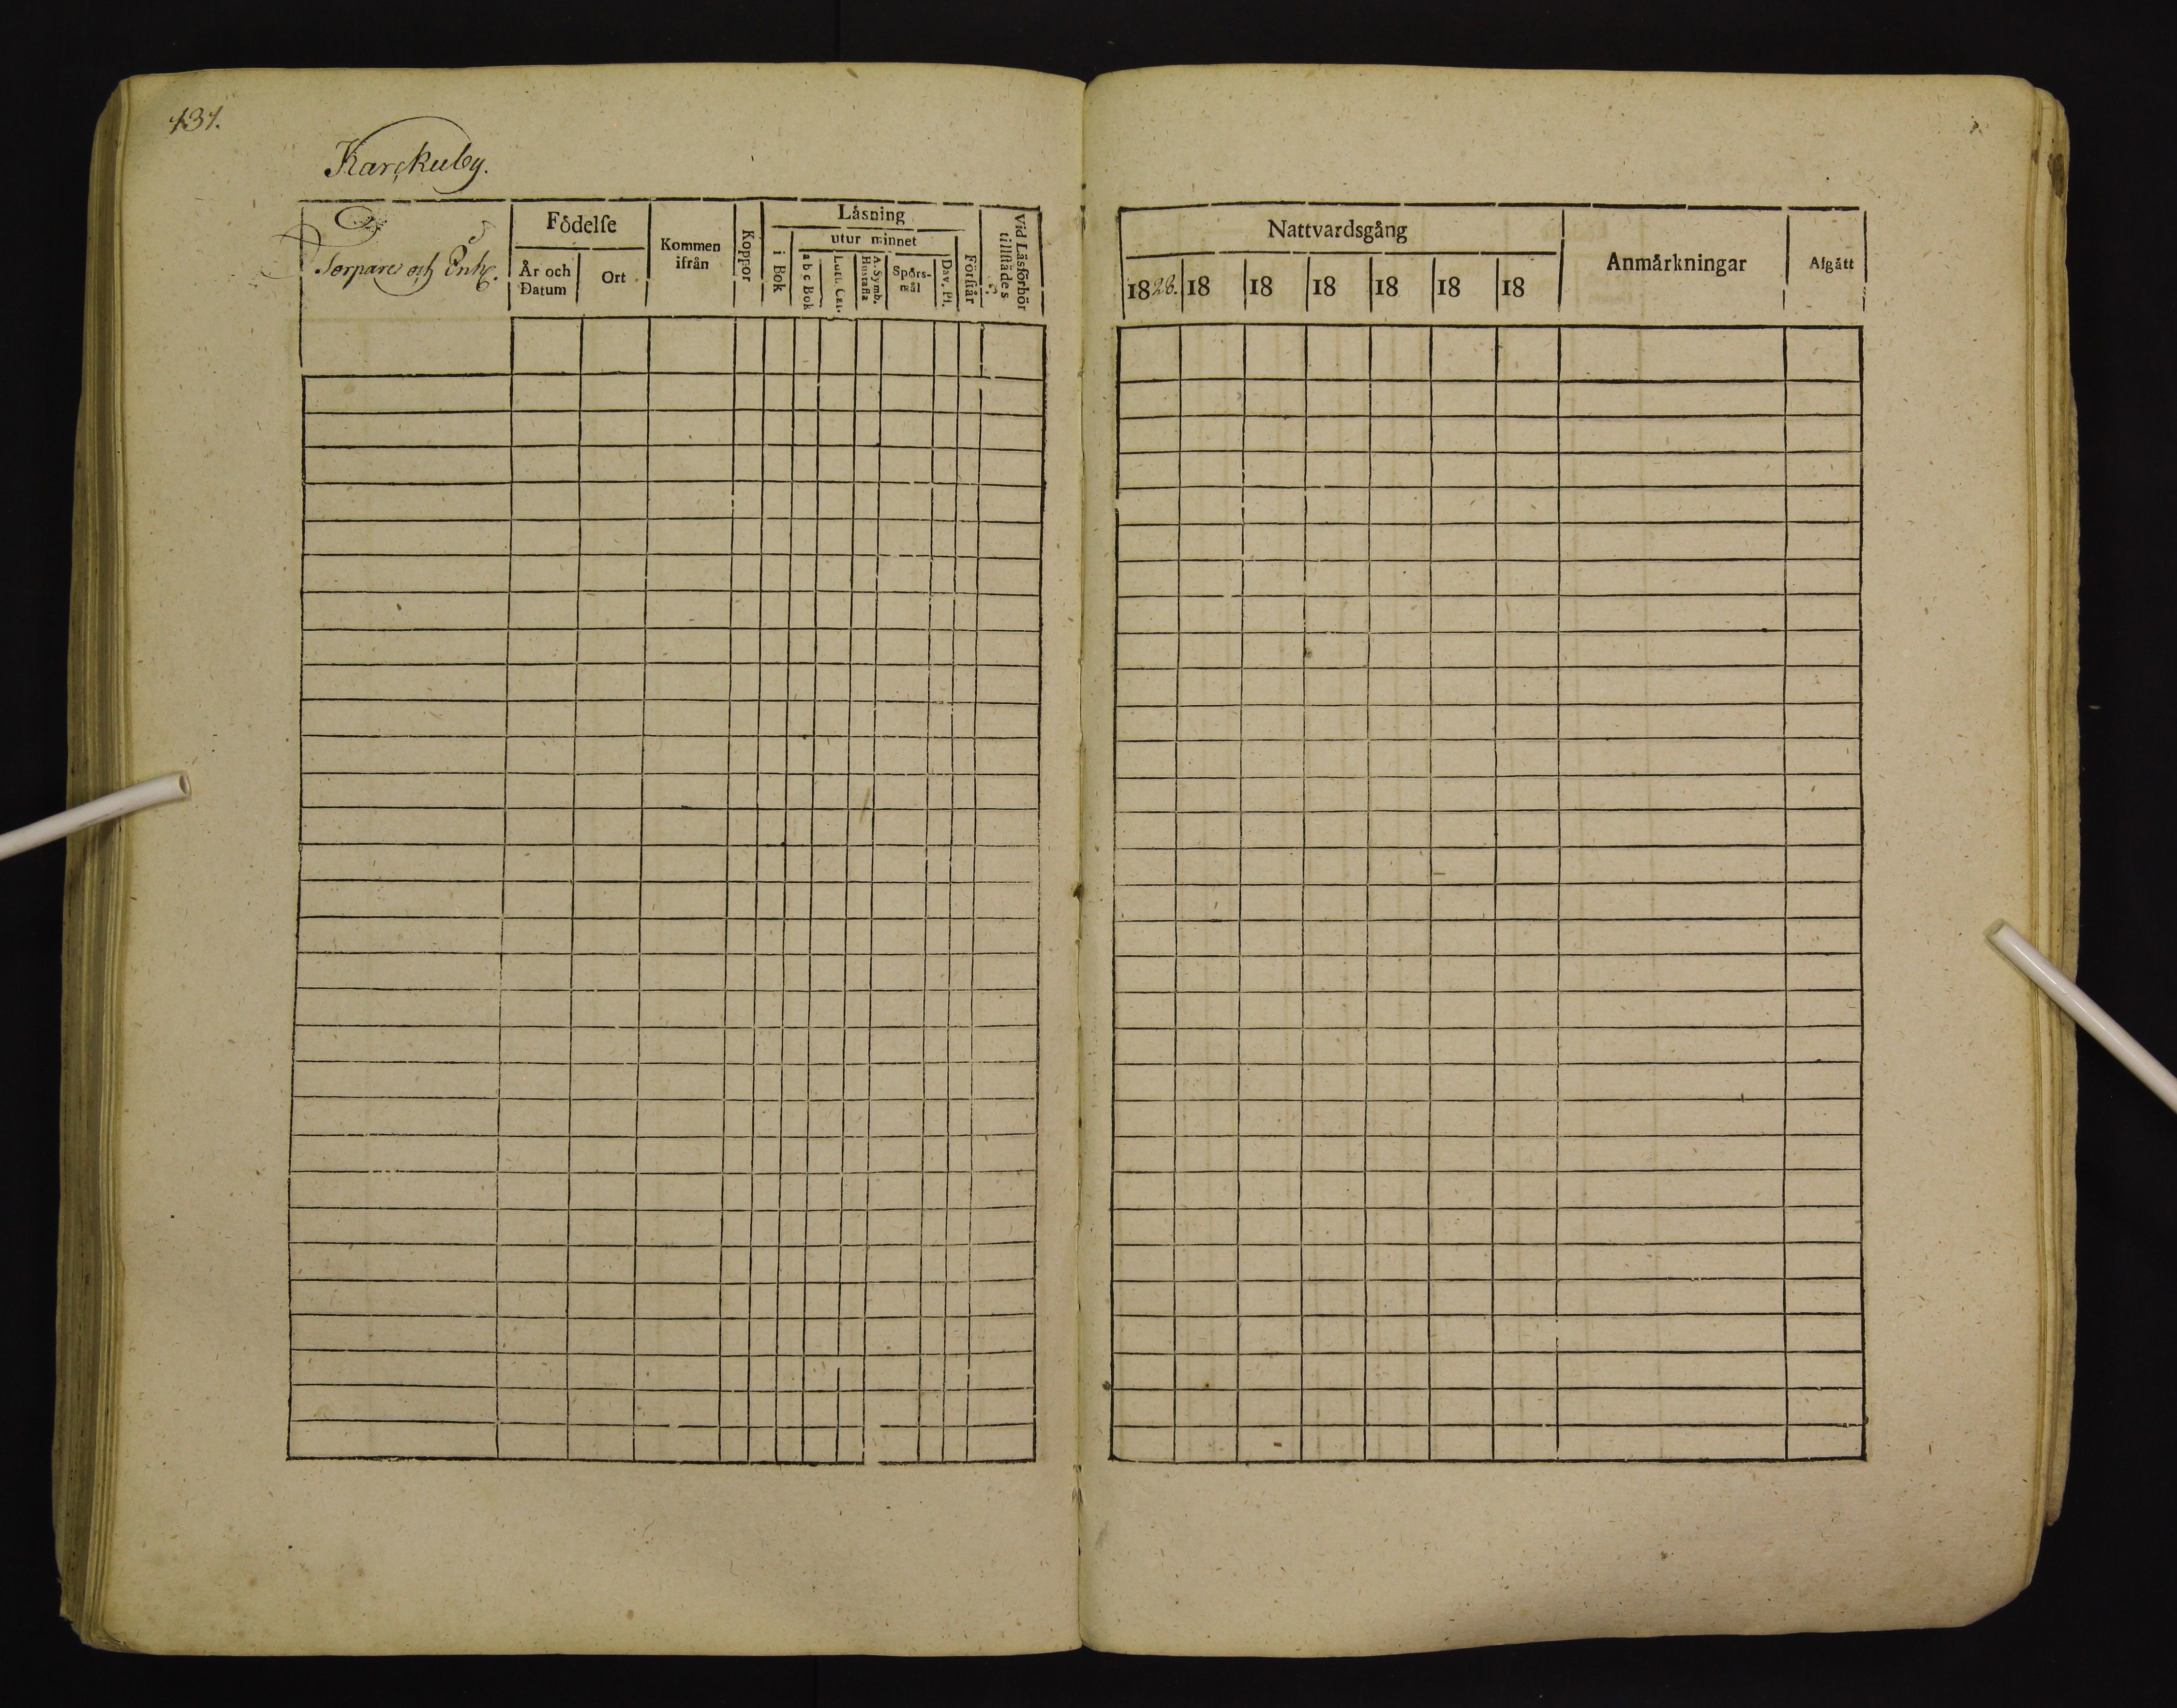 131.
Karckuby.
Torpare och Enk.
Födelſe
År och Datum
Ort
Kommen ifrån
Koppor
Låsning
i Bok
utur minnet
a b c Bok
Luth. Cat.
A. Symb. Hustafla
Spörs-mål
Dav. Pſ.
Förſtår
Vid Läsförhör tillſtädes
Nattvardsgång
1828. 18 18 18 18 18 18
Anmårkningar
Afgått